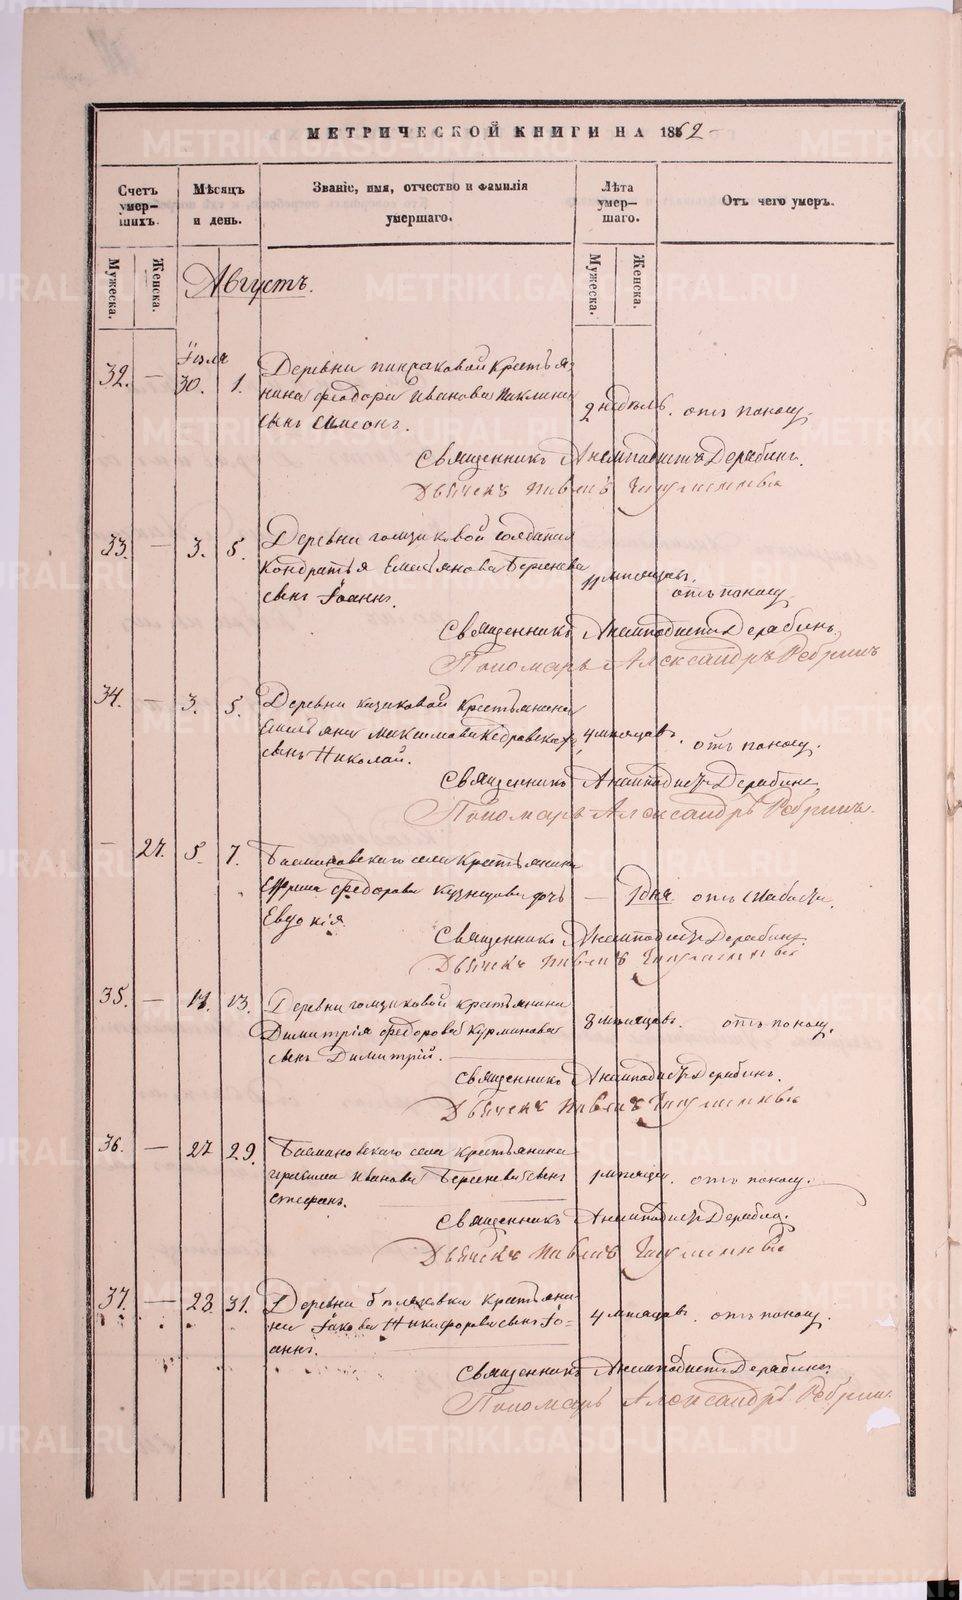 МЕТРИЧЕСКОЙ КНИГИ НА 1862
Счетъ умер-шихъ.
Мѣсяцъ и день.
Званіе, имя, отчество и фамилія умершаго.
Лѣта умер-шаго.
Отъ чего умеръ.
Мужеска.
Женска.
Мужеска.
Женска.
Августъ.
Іюля
32. — 30. 1. Деревни Крестья-
нина Феодора Иванова сынъ Симеонъ. 2 недѣль. отъ поносу.
Священникъ Анемподистъ Дерябинъ.
Дьячекъ Павелъ
33. — 3. 5. Деревни Гомзиковой солдата
Кондратья Емельянова Берсенева
сынъ Іоаннъ. 11 мѣсяцовъ. отъ поносу
Священникъ Анемподистъ Дерябинъ.
Пономарь Александръ Ребринъ
34. — 3. 5. Деревни крестьянина
Емельяна Максимова
сынъ Николай. 4 мѣсяцовъ. отъ поносу.
Священникъ Анемподистъ Дерябинъ
Пономарь Александръ Ребринъ.
— 27. 5. 7. села Крестьянина
Ефрема Федорова Кузнецова дочь — 1 дня. отъ слабости.
Евдокія.
Священникъ Анемподистъ Дерябинъ.
Дьячекъ Павелъ
35. — 13. Деревни Гомзиковой крестьянина
Димитрія Федорова
сынъ Димитрій. 8 мѣсяцовъ. отъ поносу.
Священникъ Анемподистъ Дерябинъ.
Дьячекъ Павелъ
36. — 27 29. села крестьянина
Герасима Иванова Берсенева сынъ
Стефанъ. 1 мѣсяца. отъ поносу.
Священникъ Анемподистъ
Дьячекъ Павелъ
37. — 28 31. Деревни крестьяни-
на Іакова Никифорова сынъ Іо-
аннъ. 4 мѣсяцовъ. отъ поносу.
Священникъ Анемподистъ Дерябинъ
Пономарь Александръ Ребринъ
METRIKI.GASO-URAL.RU